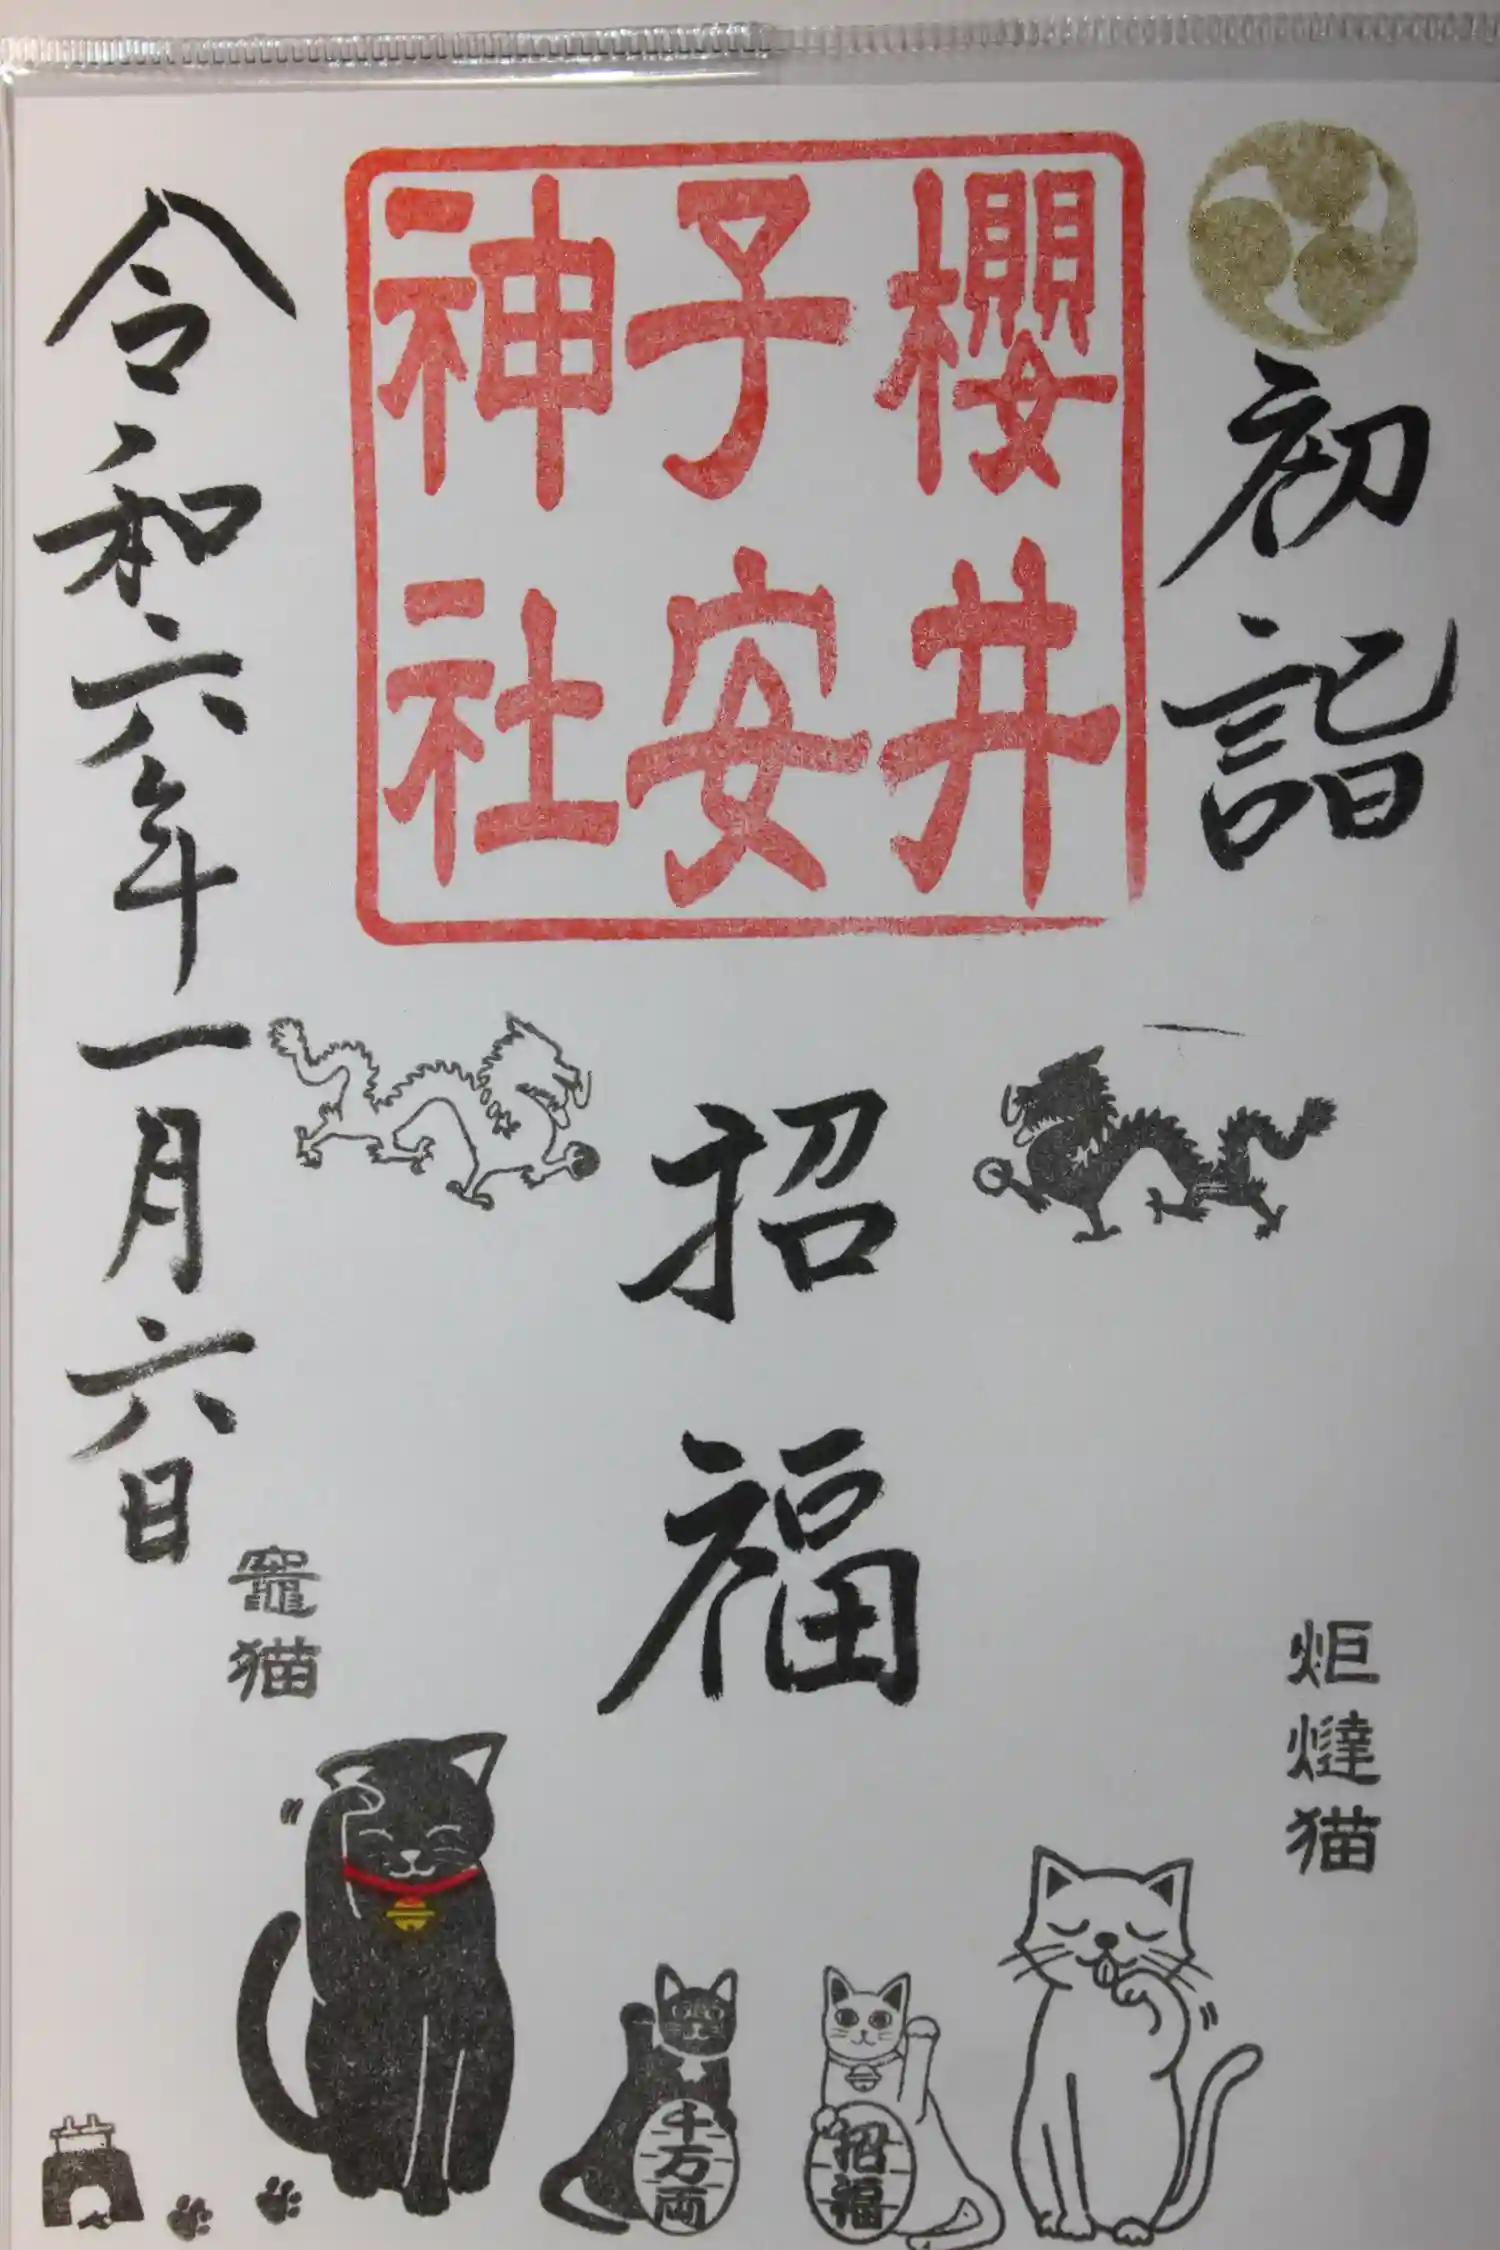 初詣
櫻井
子安
神社
招福
令和六年一月六日
炬燵猫
竈猫
招福
千万両